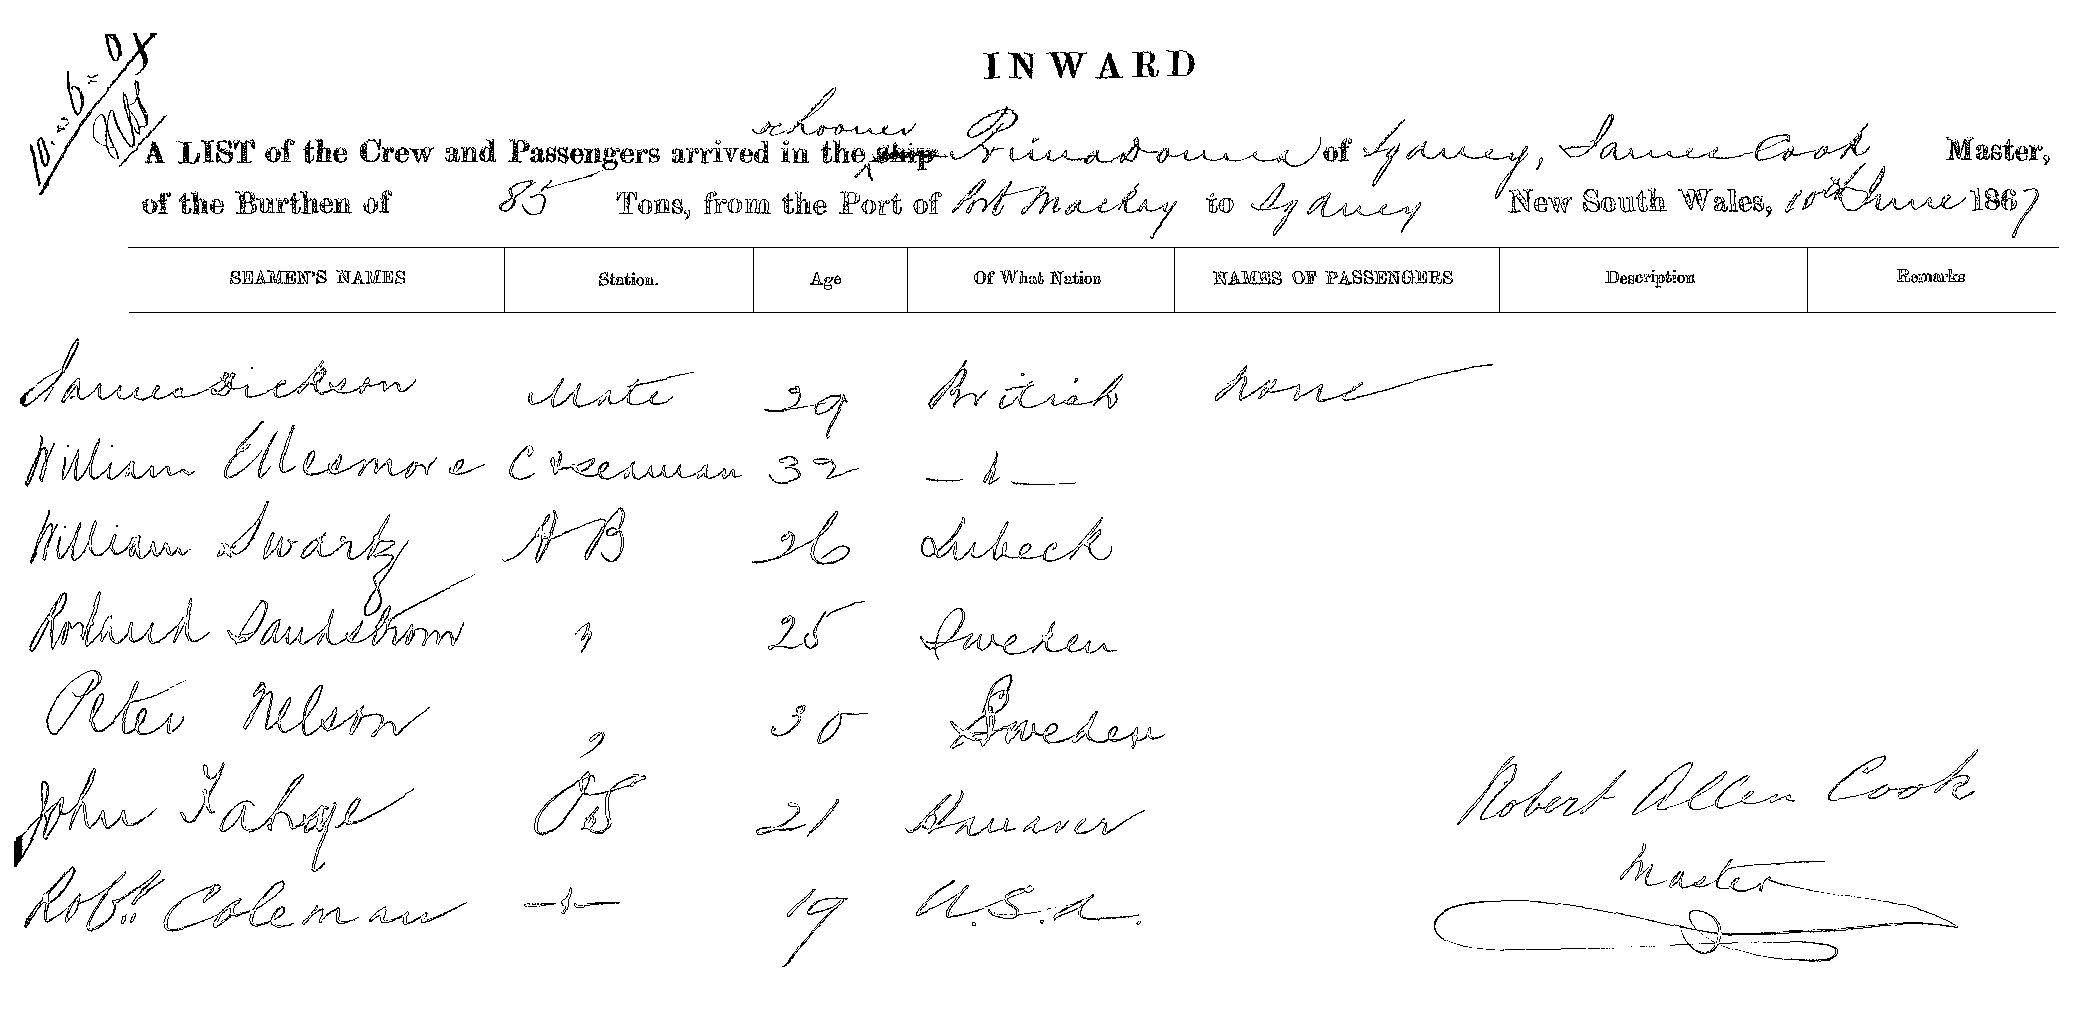 INWARD
schooner
A LIST of the Crew and Passengers arrived in the ship Prima Donna of Sydney, James Cook Master,
of the Burthen of 85 Tons, from the Port of Port Mackay to Sydney New South Wales, 10th June 1867
SEAMEN'S NAMES Station. Age Of What Nation NAMES OF PASSENGERS Description Remarks
James Dickson Mate 29 British None
William Ellesmore C & Seaman 32 — " —
William Swartz AB 26 Lubeck
Sandstrom " 25 Sweden
Peter Nelson " 30 Sweden
John OS 21 Hanover
Robt. Coleman — " — 19 U.S.A.
Robert Allen Cook
Master